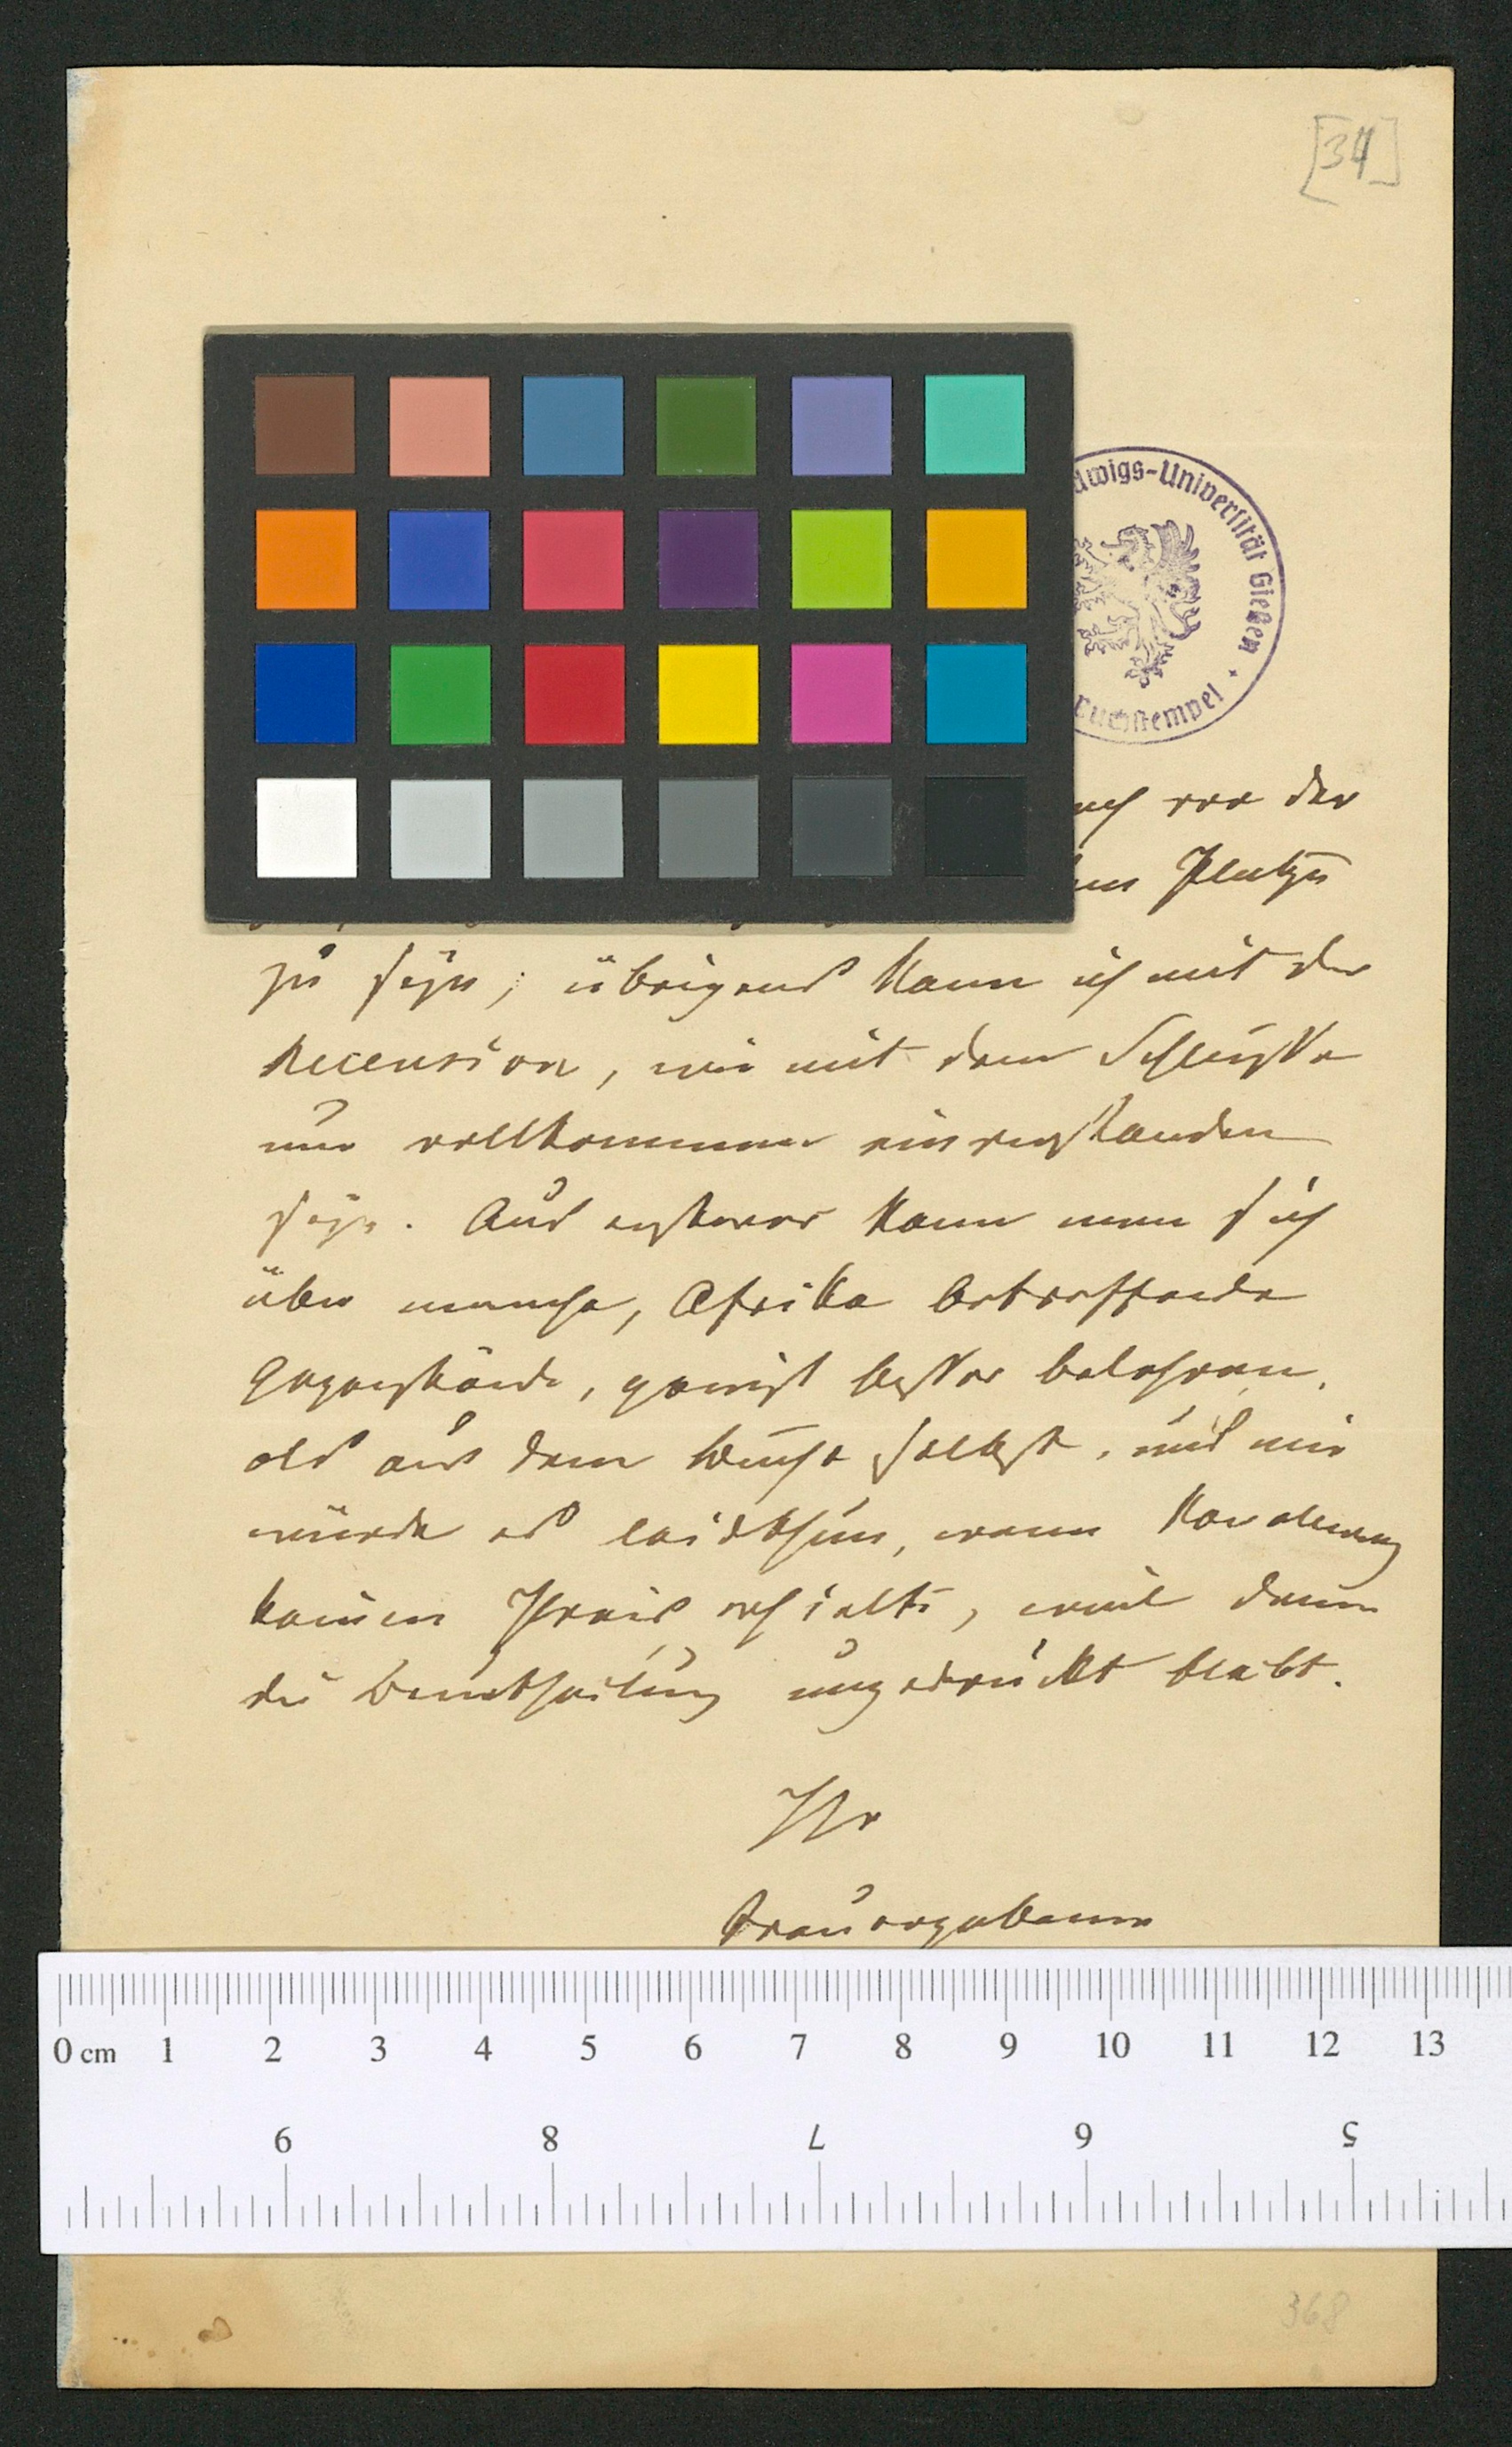 [34]
dwigs-Universität Gießen
Buchstempel
vor der
Platze
zu seyn; übrigens kann ich mit der
Recension, wie mit dem Schlusse
nur vollkommen einverstanden
seyn. Aus ersterer kann man sich
über manche, Afrika betreffende
Gegenstände, gewiß besser belehren,
als aus dem Buche selbst, und mir
würde es leidthun, wenn
keinen Preis erhielte, weil dann
die Beurtheilung ungedruckt bleibt.
Ihr
0 cm 1 2 3 4 5 6 7 8 9 10 11 12 13
9 8 7 6 5
368